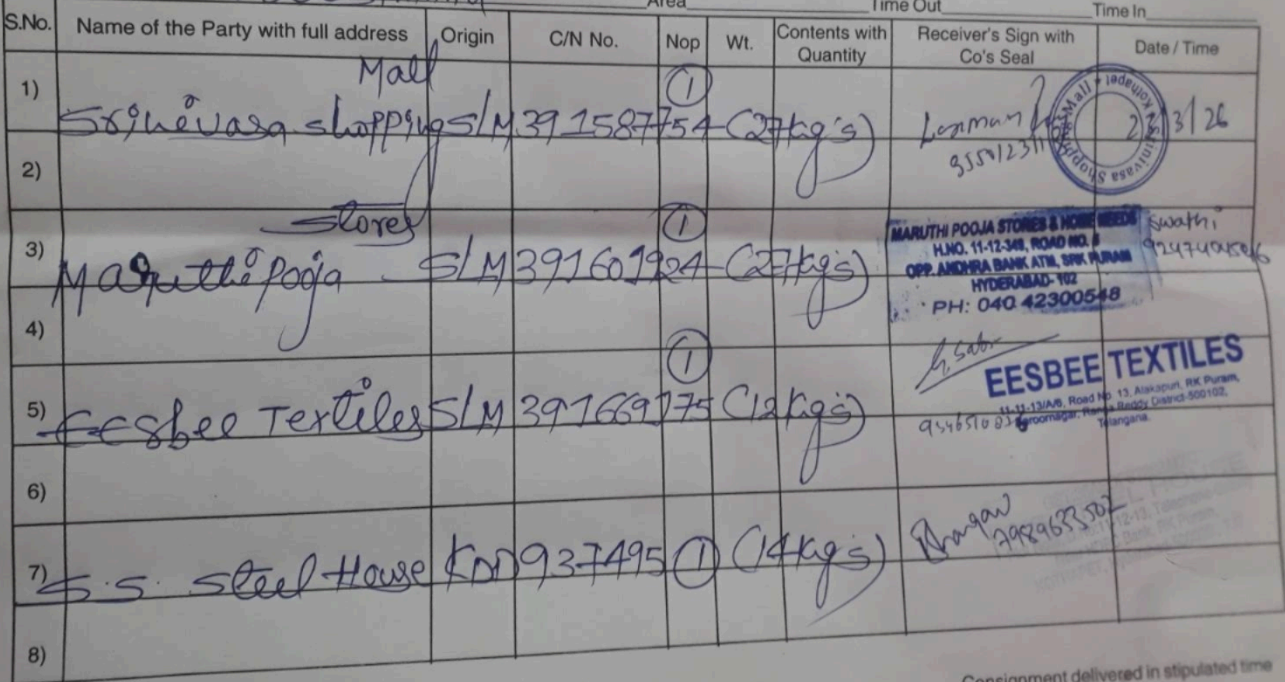 Area Time Out Time In
S.No. Name of the Party with full address Origin C/N No. Nop Wt. Contents with Quantity Receiver's Sign with Co's Seal Date / Time
Mall
1) Srinivasa shopping S/M 391587754 1 (27kg's) Laxman 2 /3/26
Srinivasa Shopping Mall Kothapet
2)
stores
3) Maruthi Pooja S/M 391601924 1 (27kg's)
MARUTHI POOJA STORES & HOME NEEDS swathi
H.NO. 11-12-348, ROAD NO. 5
OPP. ANDHRA BANK ATM, SRK PURAM
HYDERABAD- 102
PH: 040 42300548
4)
5) Eesbee Textiles S/M 391669775 1 (12kg's)
EESBEE TEXTILES
11-11-13/A/6, Road No. 13, Alakapuri, RK Puram,
Saroornagar, Ranga Reddy District-500102,
Telangana.
6)
7) S.S. Steel House KDD 937495 1 (14kg's) 7989633502
8)
Consignment delivered in stipulated time